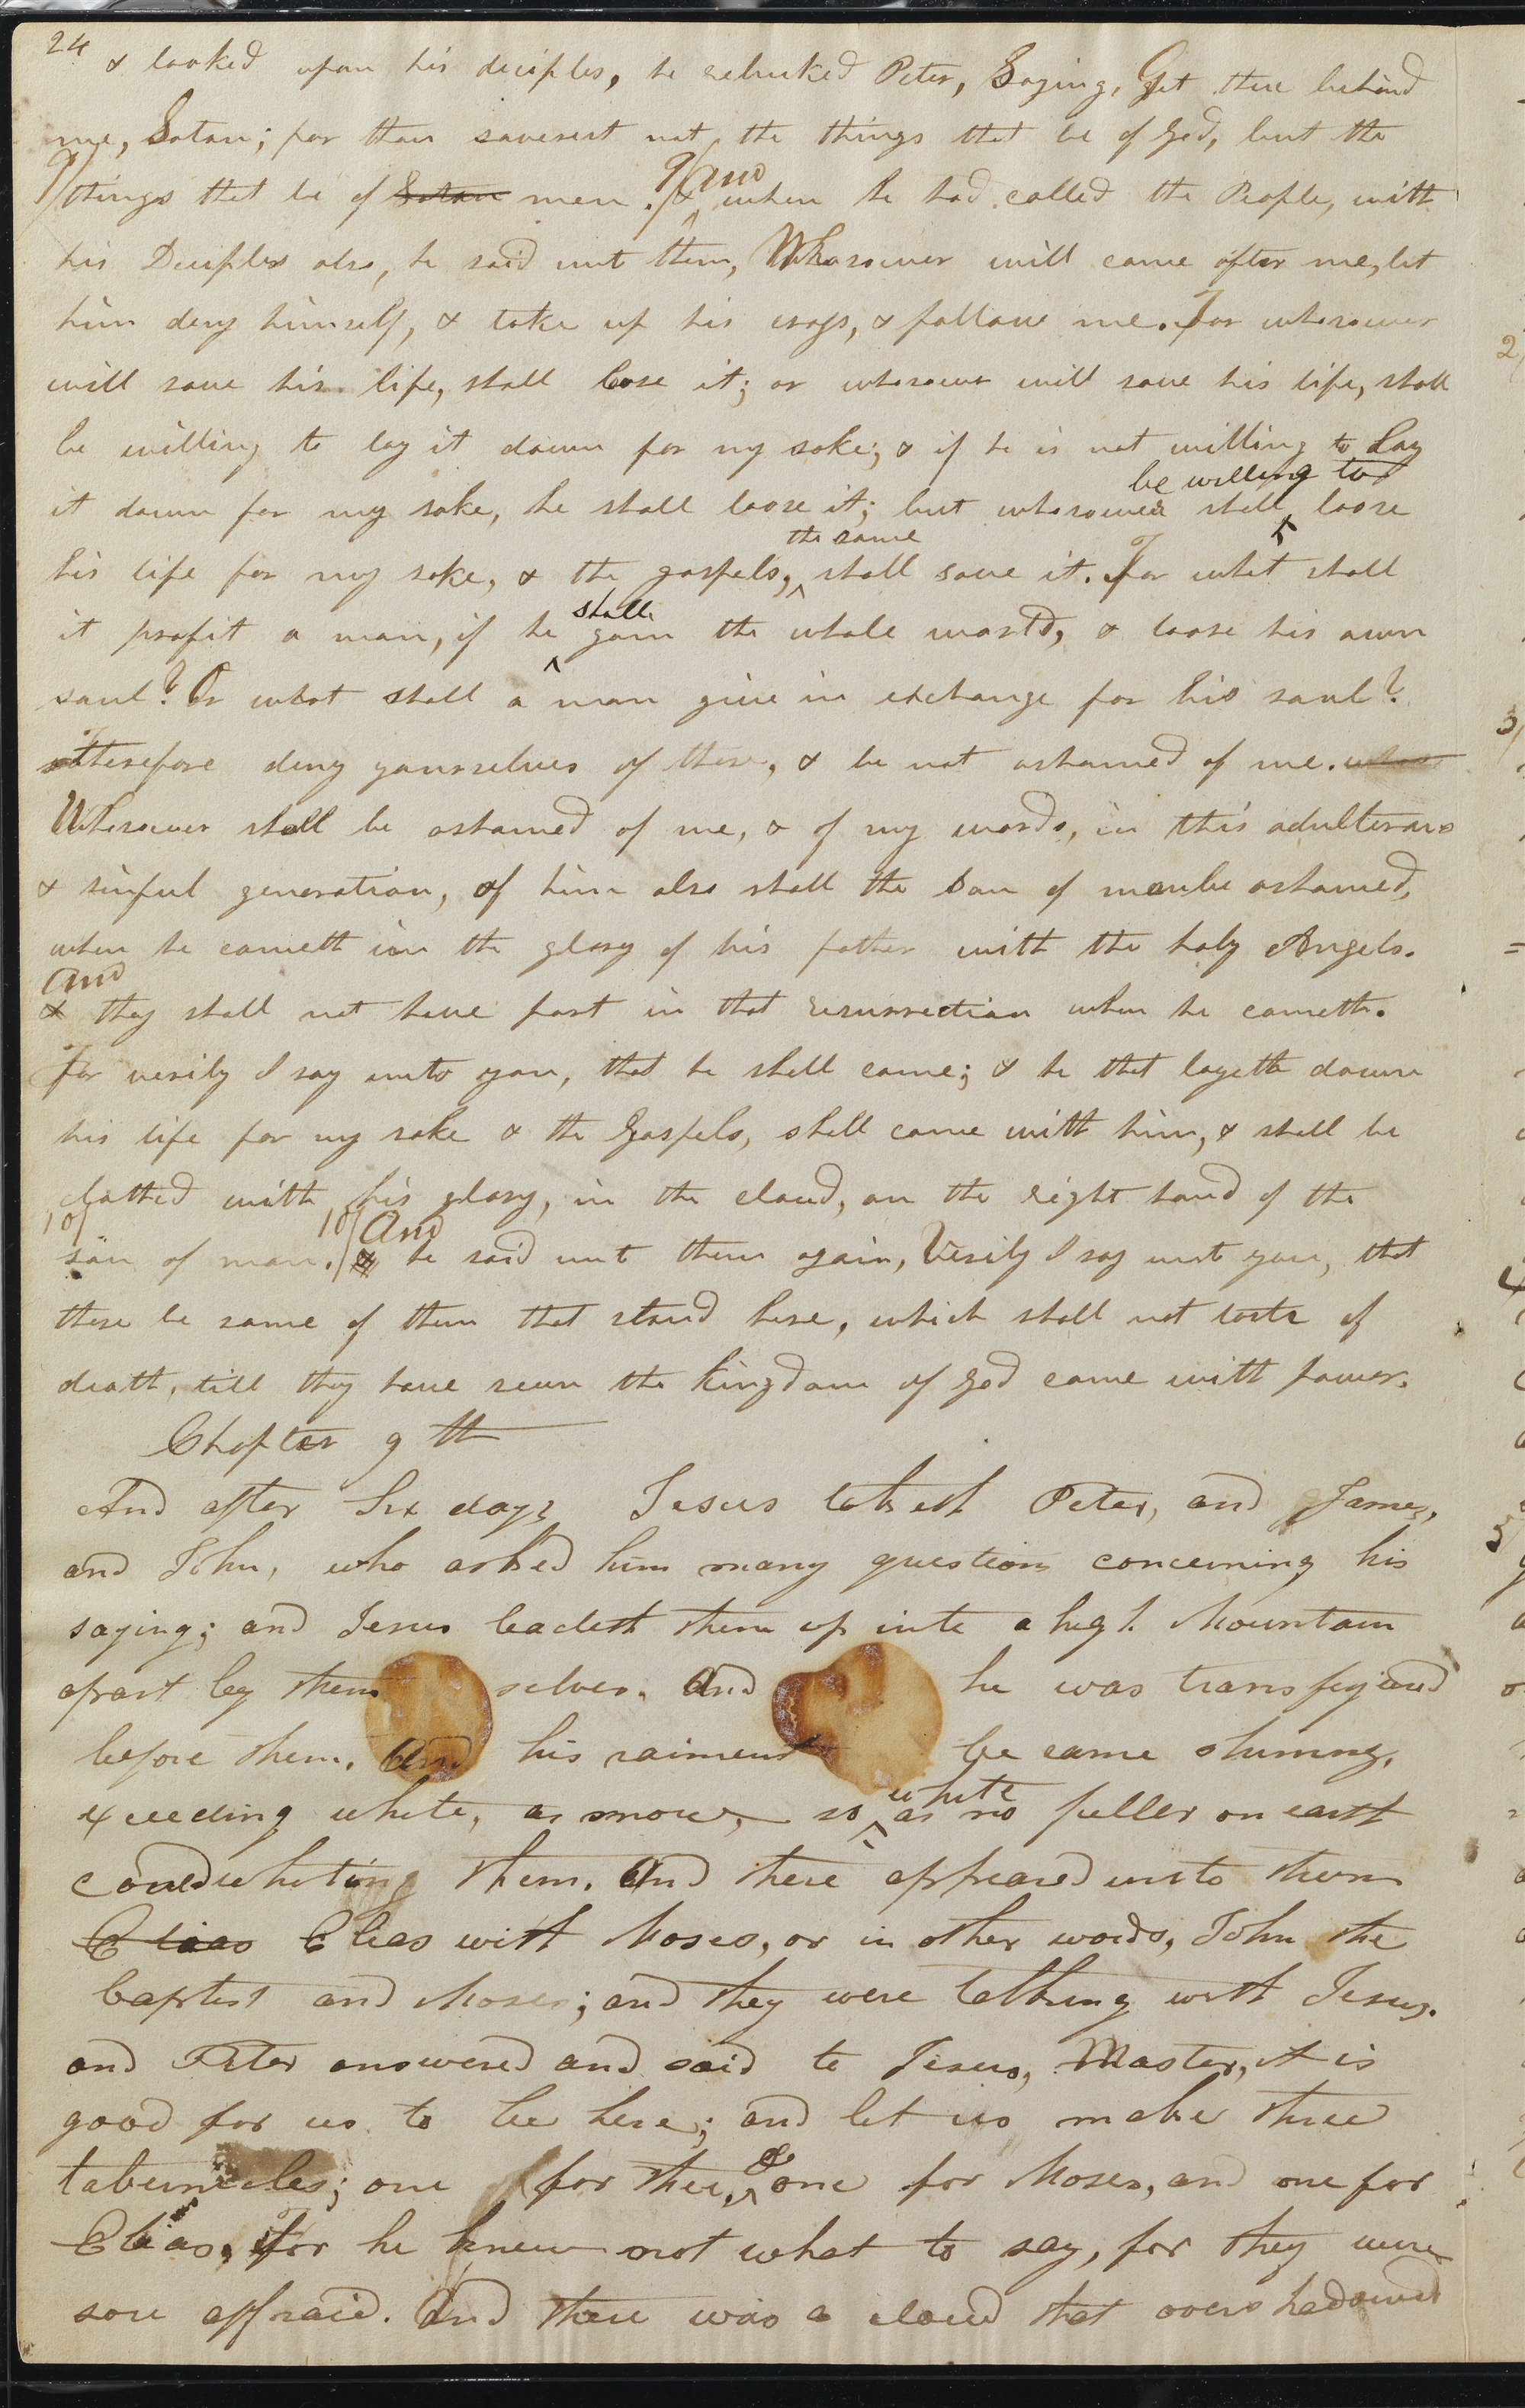 24
& looked upon his deciples, he rebuked Peter, Saying, Get thee behind
me, Satan; for thou saverest not the things that be of God, but the
9/ things that be of Satan men. 9/ & And when he had called the People, with
his Deciples also, he said unt them, Whosoever will come after me, let
him deny himself, & take up his cross, & follow me. For whosoever
will save his life, shall lose it; or whosoever will save his life, shall
be willing to lay it down for my sake; & if he is not willing to lay
be willing to
it down for my sake, he shall loose it; but whosoever shall ^ loose
the same
his life for my sake, & the gospels, ^ shall save it. For what shall
shall
it profit a man, if he ^ gain the whole world, & loose his own
soul? Or what shall a man give in exchange for his soul?
therefore deny yourselves of these, & be not ashamed of me. whos
Whosoever shall be ashamed of me, & of my words, in this adulterous
& sinful generation, of him also shall the Son of man be ashamed,
when he cometh in the glory of his father with the holy Angels.
And
& they shall not have part in that resurrection when he cometh.
for verily I say unto you, that he shall come; & he that layeth down
his life for my sake & the Gospels, shall come with him, & shall be
clothed with his glory, in the cloud, on the right hand of the
10/ 10/ And
son of man. / & he said unt them again, Verily I say unt you, that
there be some of them that stand here, which shall not taste of
death, till they have seen the kingdom of God come with power.
Chapter 9th
And after Six days Jesus taketh Peter, and James,
and John, who asked him many questions concerning his
saying; and Jesus leadeth them up into a high Mountain
apart by them selves. And he was transfigured
before them. And his raiment be came shining,
white
exceeding white, as snow, so ^ as no fuller on earth
could whiting them. And there appeared unto them
Elias Elias with Moses, or in other words, John the
baptist and Moses; and they were talking with Jesus.
and Peter answered and said to Jesus, Master, it is
good for us to be here; and let us make three
&
tabernacles; one for thee, ^ one for Moses, and one for
Elias, for he knew not what to say, for they were
sore affraid. And there was a cloud that overshadowed
2/
3/
4
5